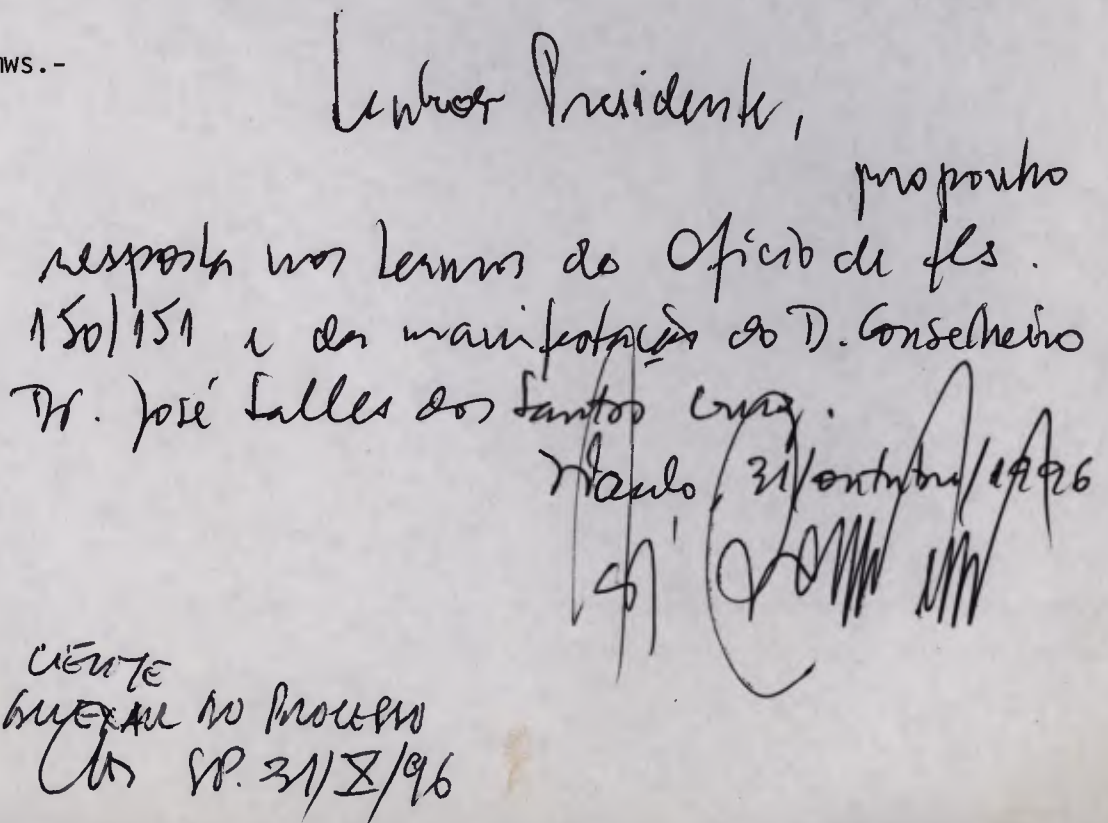 nws.-
Senhor Presidente,
proponho
resposta nos termos do Ofício de fls.
150/151 e da manifestação do D. Conselheiro
Dr. José Salles dos Santos Cruz.
SPaulo, 31/outubro/1996
CIENTE
ANEXAR AO PROCESSO
SP. 31/X/96